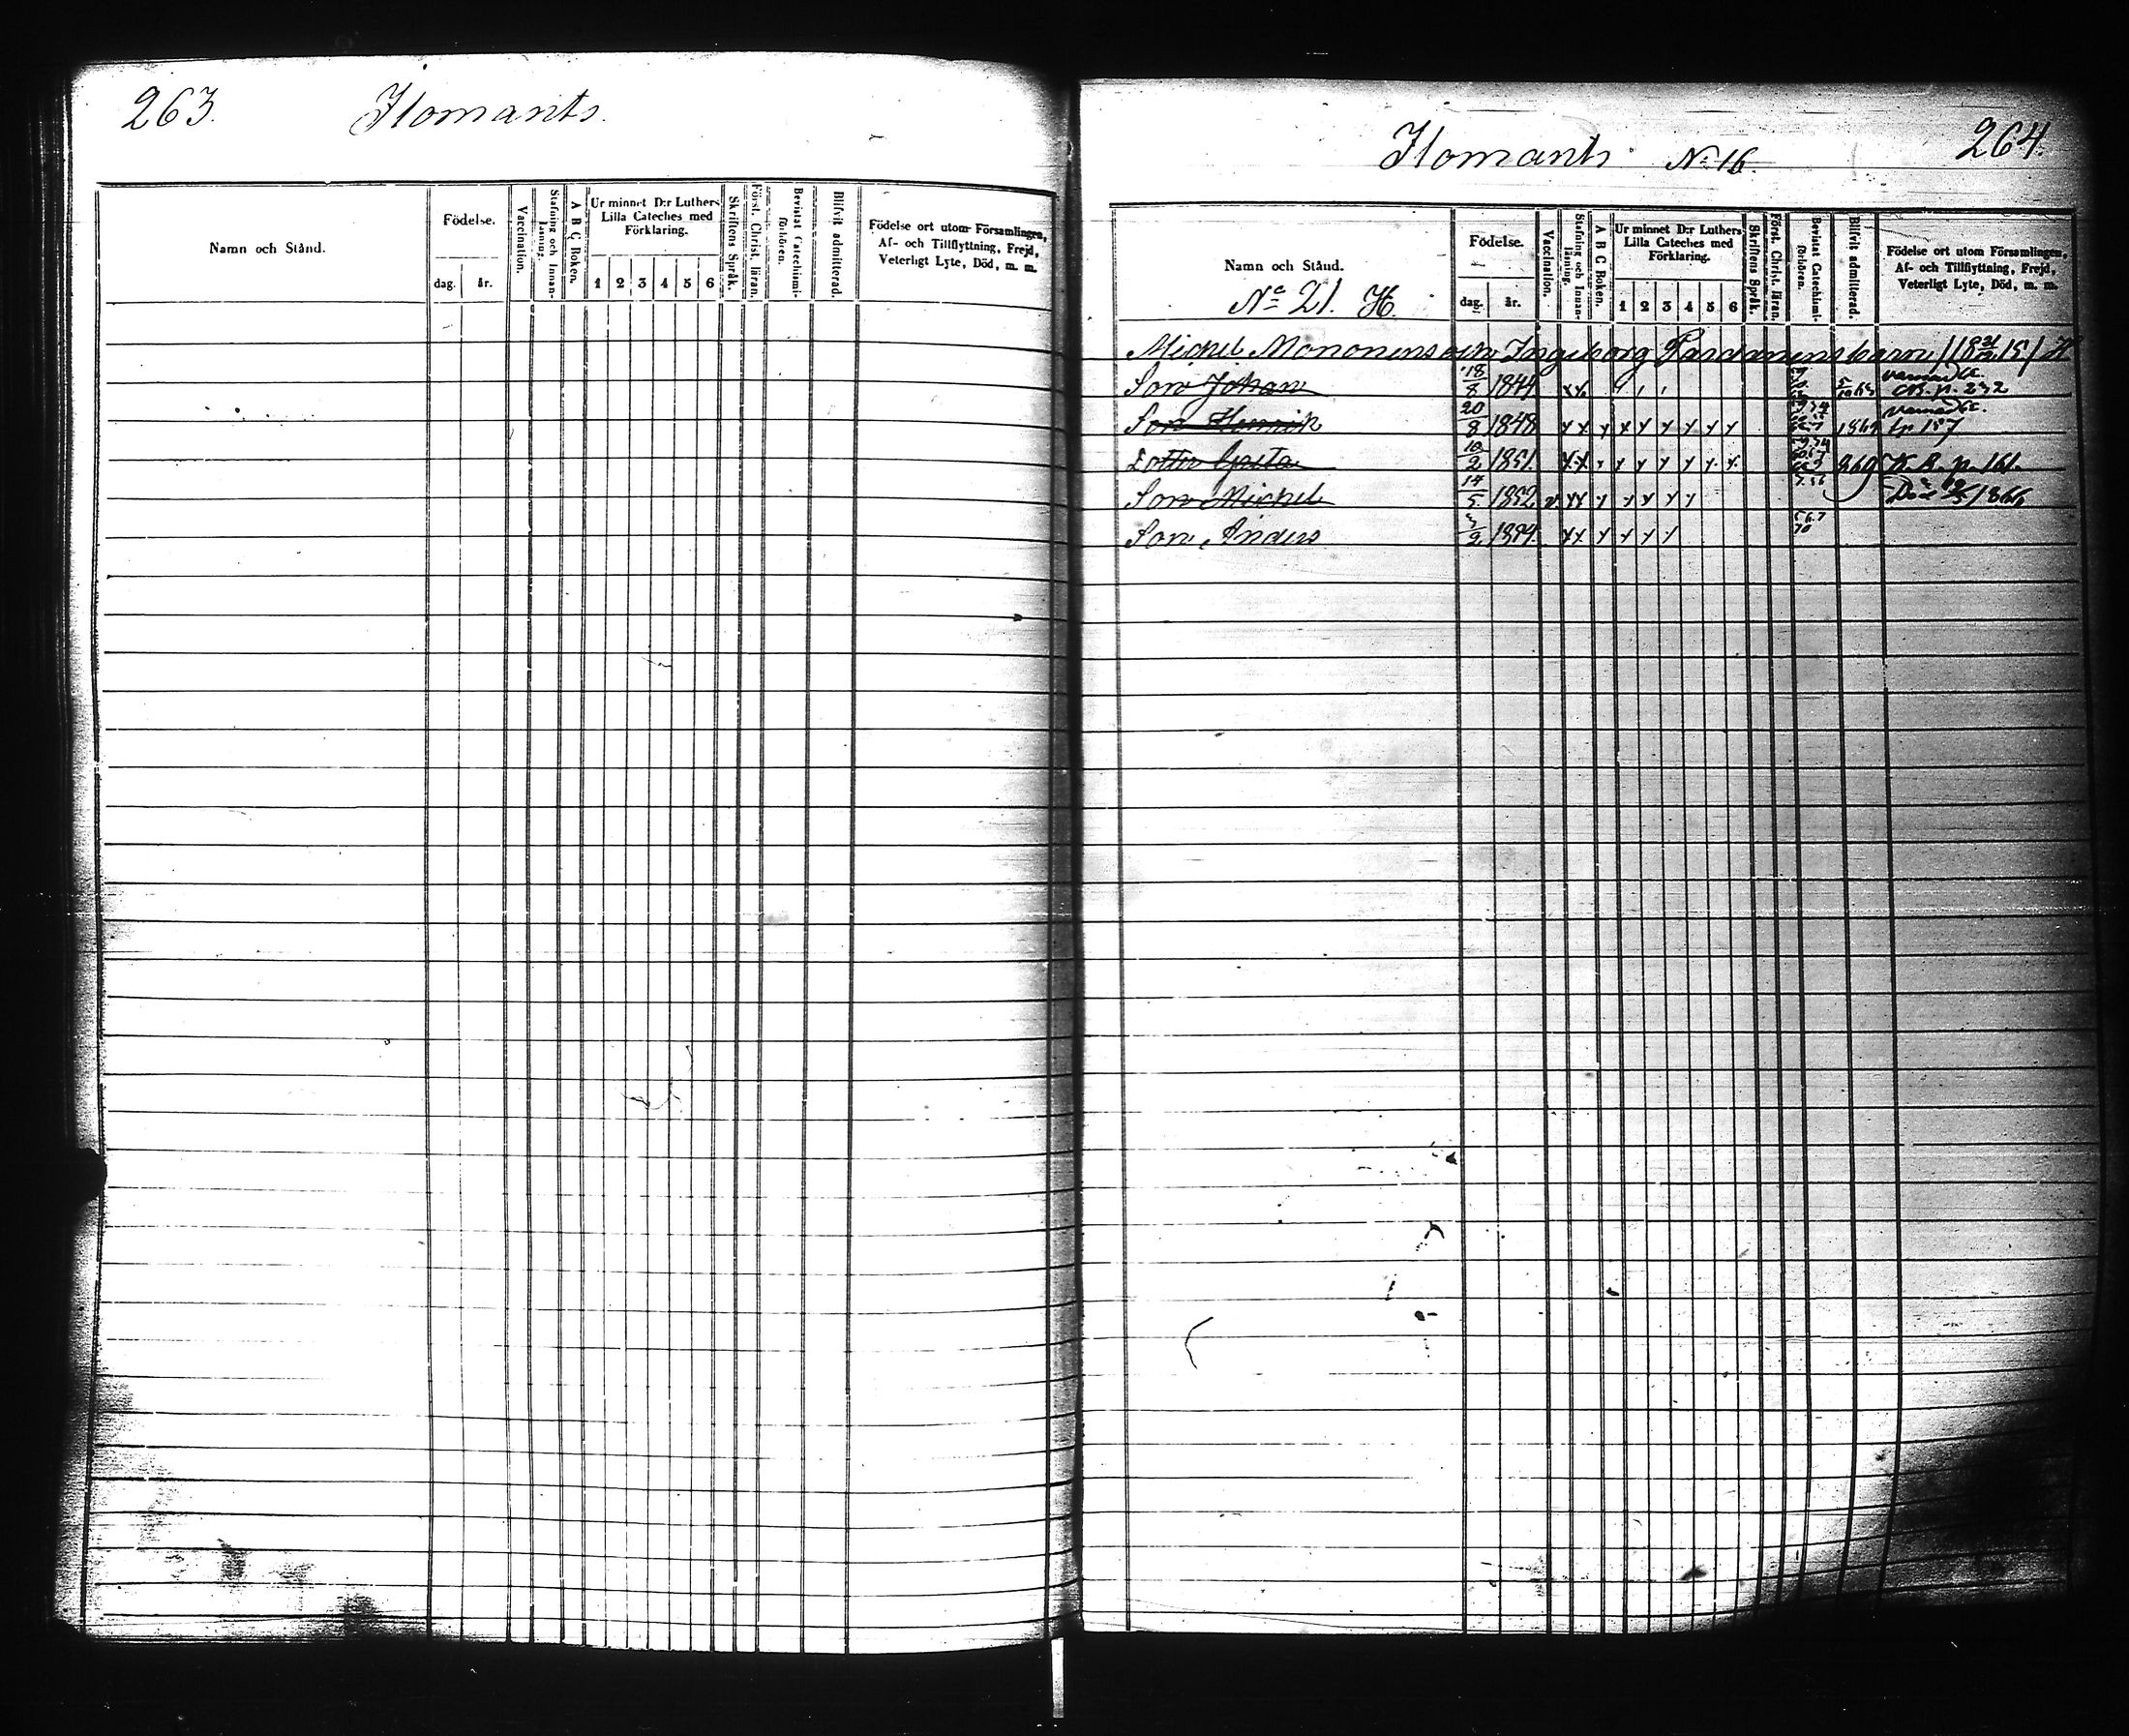 263. Ilomants.
Namn och Stånd.
Födelse.
dag. år.
Vaccination.
Stafning och Innanläsning.
A B C Boken.
Ur minnet D:r Luthers
Lilla Cateches med
Förklaring.
1 2 3 4 5 6
Skriftens Språk.
Först. Christ. läran.
Bevistat Catechismiförhören.
Blifvit admitterad.
Födelse ort utom Församlingen,
Af- och Tillflyttning, Frejd,
Veterligt Lyte, Död, m. m.
Ilomants No 16. 264.
Namn och Stånd.
No 21. H
Födelse.
dag. år.
Vaccination.
Stafning och Innanläsning.
A B C Boken.
Ur minnet D:r Luthers
Lilla Cateches med
Förklaring.
1 2 3 4 5 6
Skriftens Språk.
Först. Christ. läran.
Bevistat Catechismiförhören.
Blifvit admitterad.
Födelse ort utom Församlingen,
Af- och Tillflyttning, Frejd,
Veterligt Lyte, Död, m. m.
Michel Mononens och Ingeborg barn
Son Johan 18/8 1844 p. 232
Son Henrik 20/8 1848 x x x x x x x x x 1869 157
Dotter Greta 10/2 1851. x x x x x x x x x 869 K. B. p. 161.
Son Michel 14/5 1852 v. x x x x x x x Död 1866
Son Anders 2 x x x x x x